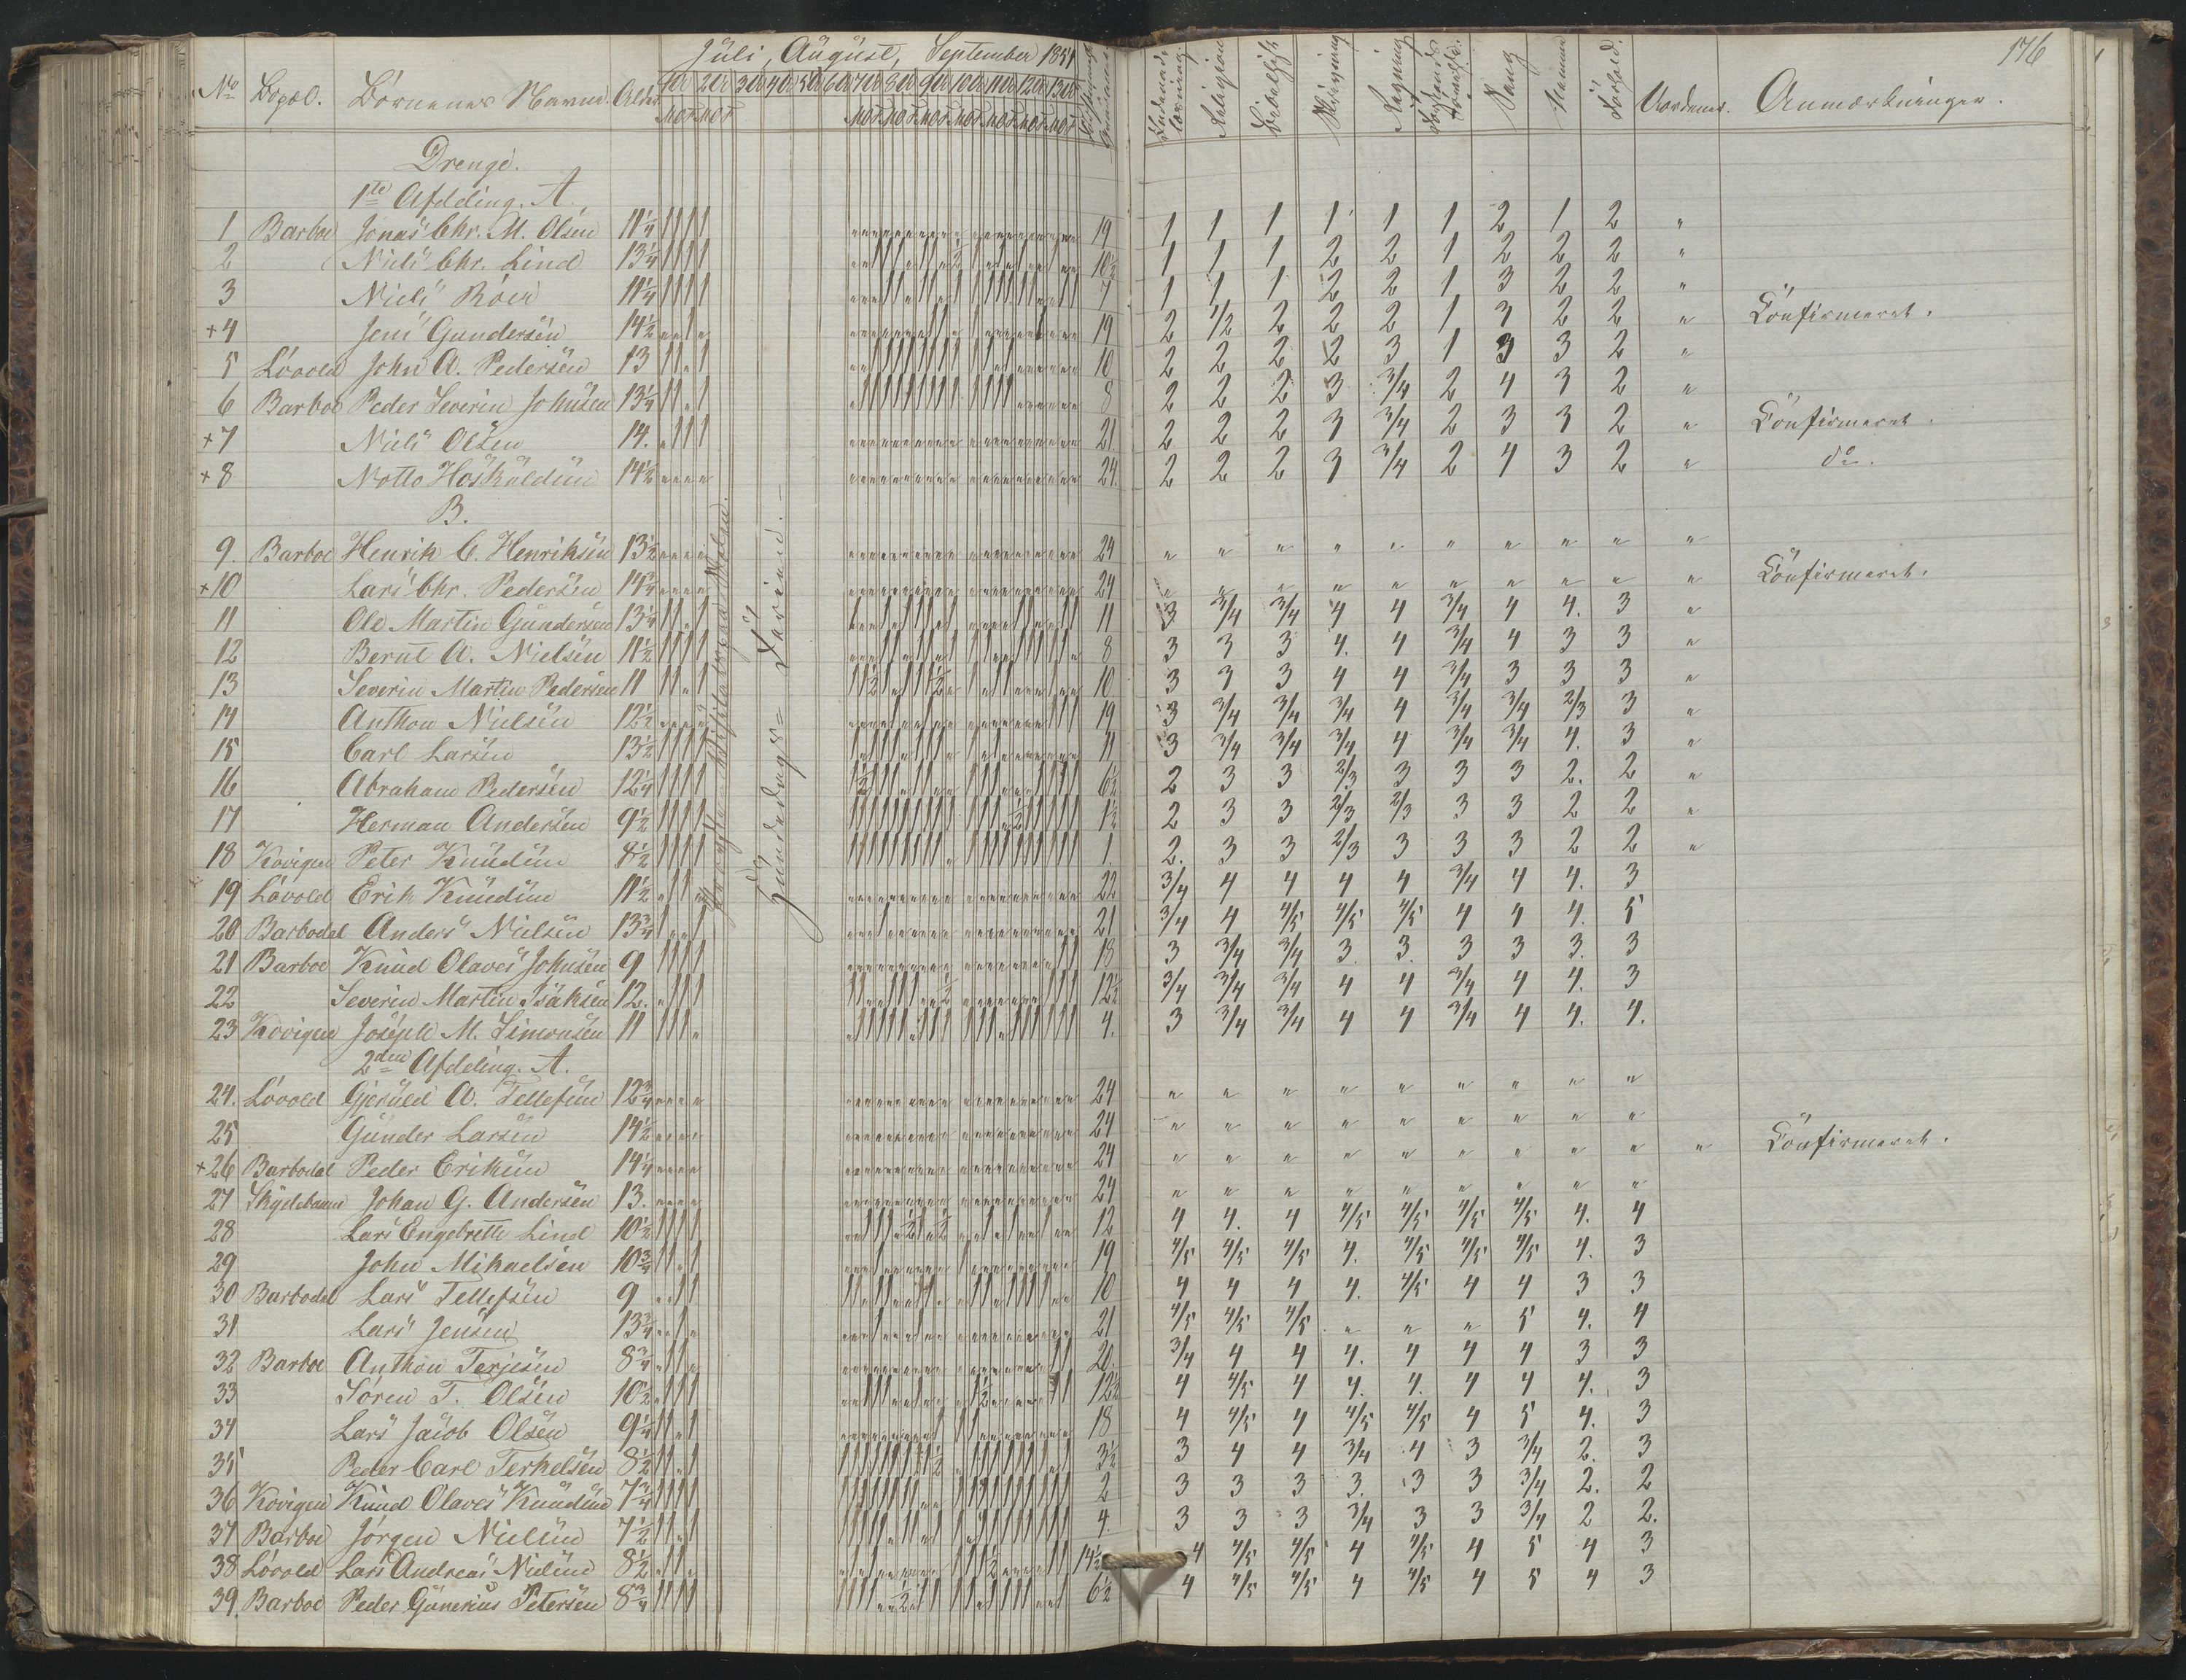 Juli, August, September 1851
176
No Bopæl. Børnenes Navne. Alder 1ste 2den 3die 4de 5te 6te 7de 8de 9de 10de 11te 12te 13de Religion Bibellæs. Skrivning Regning Sang Stemme Forhold. Anmærkninger.
Drenge.
1ste Afdeling. A.
1 Barboe Jonas Chr. M. Olsen 11 1/4 19 1 1 1 1 1 1 2 1 2 "
2 Niels Chr. Lind 13 1/4 10 1/2 1 1 1 2 2 1 2 2 2 "
3 Niels Roer 11 1/4 7 1 1 1 2 2 1 3 2 2 "
+4 Jens Gundersen 14 1/2 19 2 1/2 2 2 2 1 3 2 2 " Confirmeret.
5 Løvold John A. Pedersen 13 10 2 2 2 2 3 1 3 3 2 "
6 Barboe Peder Severin Johnsen 13 1/4 8 2 2 2 3 3/4 2 4 3 2 "
+7 Niels Olsen 14. 21 2 2 2 3 3/4 2 3 3 2 " Confirmeret.
+8 Notto Hoskuldsen 14 1/2 24. 2 2 2 3 3/4 2 4 3 2 " do.
B.
9. Barboe Henrik C. Henriksen 13 1/2 24 " " " " " " " " " "
+10 Lars Chr. Pedersen 14 3/4 24 " " " " " " " " " " Confirmeret.
11 Ole Martin Gundersen 13 1/4 11 3 3/4 3/4 4 4 3/4 4 4. 3 "
12 Bernt A. Nielsen 11 1/2 8 3 3 3 4. 4 3/4 4 3 3 "
13 Severin Martin Pedersen 11 10 3 3 3 4 4 3/4 3 3 3 "
14 Anthon Nielsen 12 1/2 19 3 3/4 3/4 3/4 4 3/4 3/4 2/3 3 "
15 Carl Larsen 13 1/2 11 3 3/4 3/4 3/4 4 3/4 3/4 4. 3 "
16 Abraham Pedersen 12 1/4 6 1/2 2 3 3 2/3 3 3 3 2. 2 "
17 Herman Andersen 9 1/2 1 1/2 2 3 3 2/3 2/3 3 3 2 2 "
18 Kovigen Peter Knudsen 8 1/2 1. 2. 3 3 2/3 3 3 3 2 2 "
19 Løvold Erik Knudsen 11 1/2 22 3/4 4 4 4 4 3/4 4 4. 3
20 Barbodal Anders Nielsen 13 3/4 21 3/4 4 4/5 4/5 4/5 4 4 4. 5
21 Barboe Knud Olaves Johnsen 9 18 3 3/4 3/4 3. 3. 3 3 3. 3
22 Severin Martin Isaksen 12. 12 1/2 3/4 3/4 3/4 4 4 3/4 4 4. 3
23 Kovigen Joseph M. Simonsen 11 4. 3 3/4 3/4 4 4 3/4 4 4. 4.
2den Afdeling. A.
24. Løvold Gjeruld A. Tellefsen 12 3/4 24 " " " " " " " " "
25 Gunder Larsen 14 1/2 24 " " " " " " " " "
+26 Barbodal Peder Eriksen 14 1/4 24 " " " " " " " " " " Confirmeret.
27 Skydebanen Johan G. Andersen 13. 24 " " " " " " " " "
28 Lars Engebrette Lind 10 1/2 12 4 4. 4 4/5 4/5 4/5 4/5 4. 4
29 John Mikaelsen 10 3/4 19 4/5 4/5 4/5 4. 4/5 4/5 4/5 4. 3
30 Barbodal Lars Tellefsen 9 10 4 4 4 4. 4/5 4 4 3 3
31 Lars Jensen 13 3/4 21 4/5 4/5 4/5 " " " 5 4. 4
32 Barboe Anthon Terjesen 8 3/4 20. 3/4 4 4 4. 4 4 4 3 3
33 Søren T. Olsen 10 1/2 12 1/2 4 4/5 4 4. 4. 4 4 4. 3
34 Lars Jacob Olsen 9 1/4 18 4 4/5 4 4/5 4/5 4 5 4. 3
35 Peder Carl Terkelsen 8 1/2 3 1/2 3 4 4 3/4 4 3 3/4 2. 3
36 Kovigen Knud Olaves Knudsen 7 3/4 2 3 3 3 3. 3 3 3/4 2. 2
37 Barboe Jørgen Nielsen 7 1/2 4. 3 3 3 3/4 3 3 3/4 2 2.
38 Løvold Lars Andreas Nielsen 8 1/2 14 1/2 4 4/5 4/5 4 4/5 4 5 4 3
39. Barboe Peder Gunerius Petersen 8 3/4 6 1/2 4 4/5 4/5 4 4/5 4 5 4 3